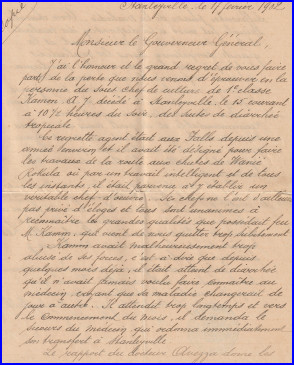 Stanleyville, le 17 février 1902
Monsieur le Gouverneur Général,
J'ai l'honneur et le grand regret de vous faire
part de la perte que nous venons d'éprouver en la
personne du sous chef de culture de 1e classe
Kamm A. J. décédé à Stanleyville, le 15 courant
à 10 heures du soir, des suites de diarrhée
tropicale.
Ce regretté agent était aux Falls depuis une
année environ et il avait été désigné pour faire
les travaux de la route aux chutes de Wanie
Rukula où par un travail intelligent et de tous
les instants, il était parvenu à y établir un
véritable chef d'œuvre. Ses chefs ne l'ont d'ailleurs
pas privé d'éloges et tous sont unanimes à
reconnaître les grandes qualités que possédait feu
M. Kamm, qui vient de nous quitter trop subitement.
Kamm avait malheureusement trop
abusé de ses forces, c'est à dire que depuis
quelques mois déjà, il était atteint de diarrhée
qu'il n'avait jamais voulu faire connaître au
médecin, croyant que sa maladie changerait de
jour à autre. Il attendit trop longtemps et vers
le commencement du mois, il demanda le
secours du médecin qui ordonna immédiatement
son transfert à Stanleyville.
Le rapport du docteur donne les